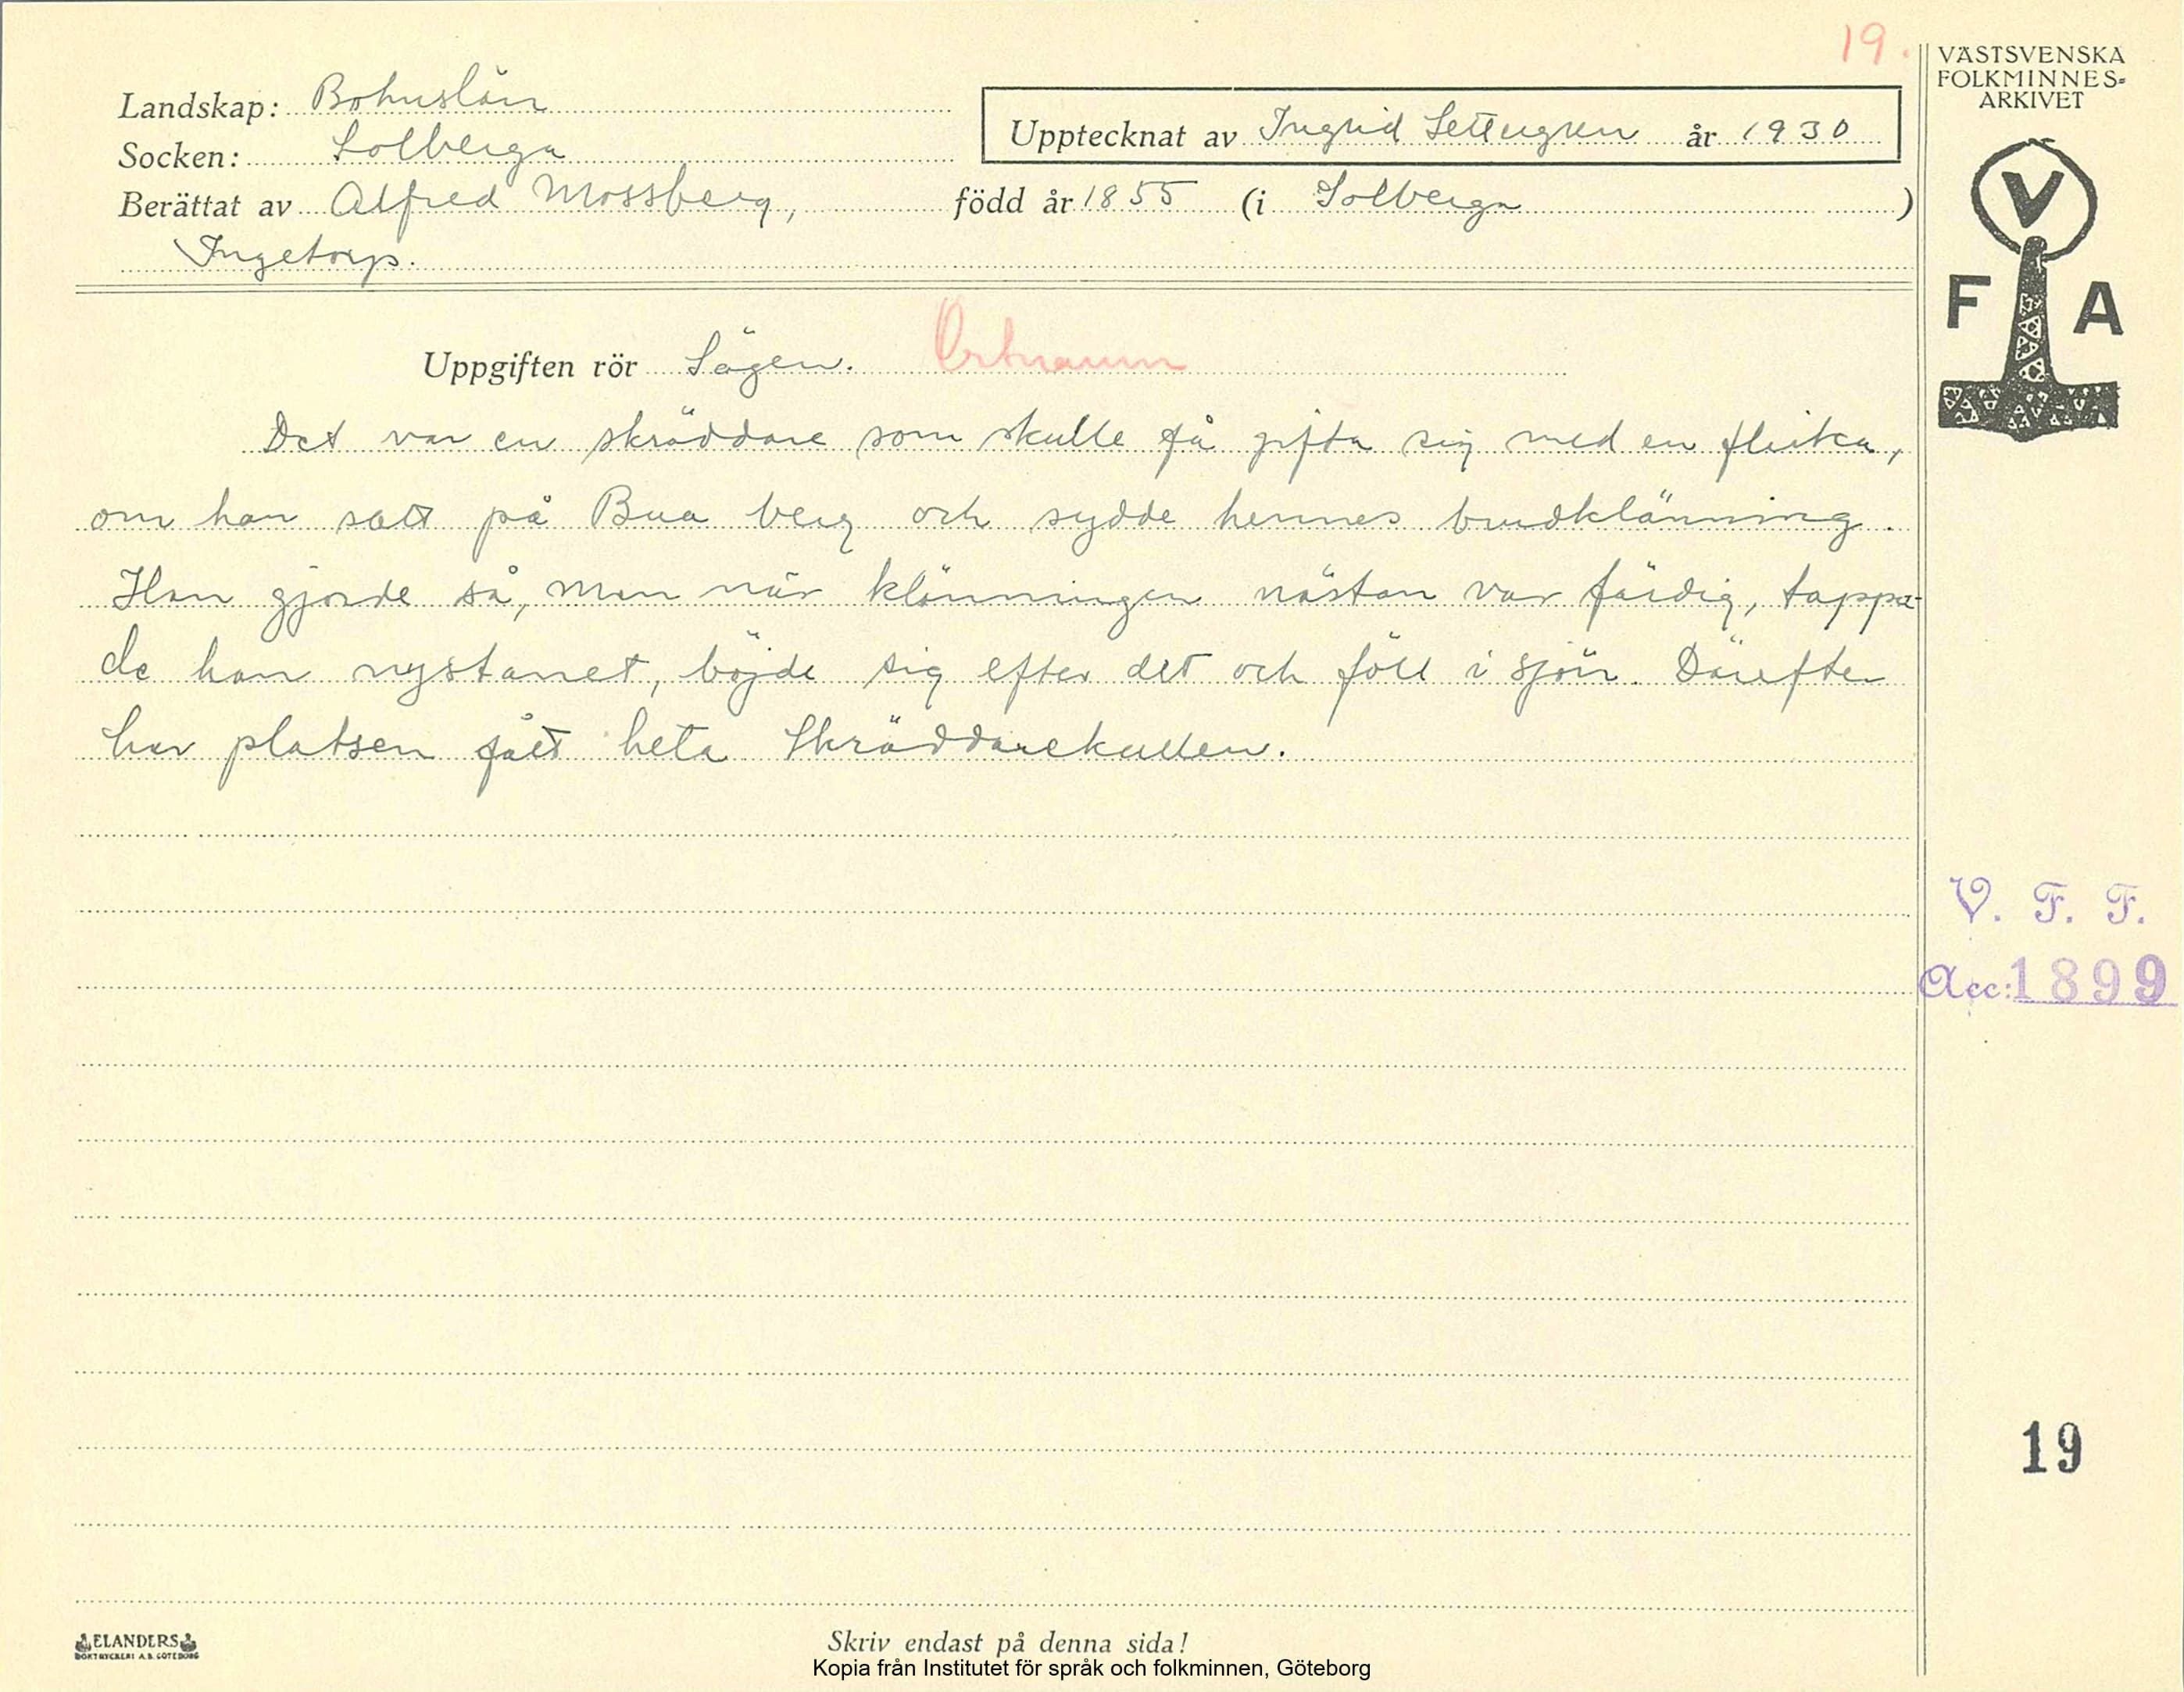 19.
VÄSTSVENSKA
FOLKMINNES-
ARKIVET
Landskap: Bohuslän
Upptecknat av Ingrid Settergren år 1930
Socken: Solberga
Berättat av Alfred Mossberg, född år 1855 (i Solberga )
Ingetorp.
V
F A
Uppgiften rör Sägen. Ortnamn
Det var en skräddare som skulle få gifta sig med en flicka,
om han satt på Bua berg och sydde hennes brudklänning.
Han gjorde så, men när klänningen nästan var färdig, tappa-
de han nystanet, böjde sig efter det och föll i sjön. Därefter
har platsen fått heta Skräddarekullen.
V. F. F.
Acc: 1899
19
ELANDERS
BOKTRYCKERI A.B. GÖTEBORG
Skriv endast på denna sida!
Kopia från Institutet för språk och folkminnen, Göteborg